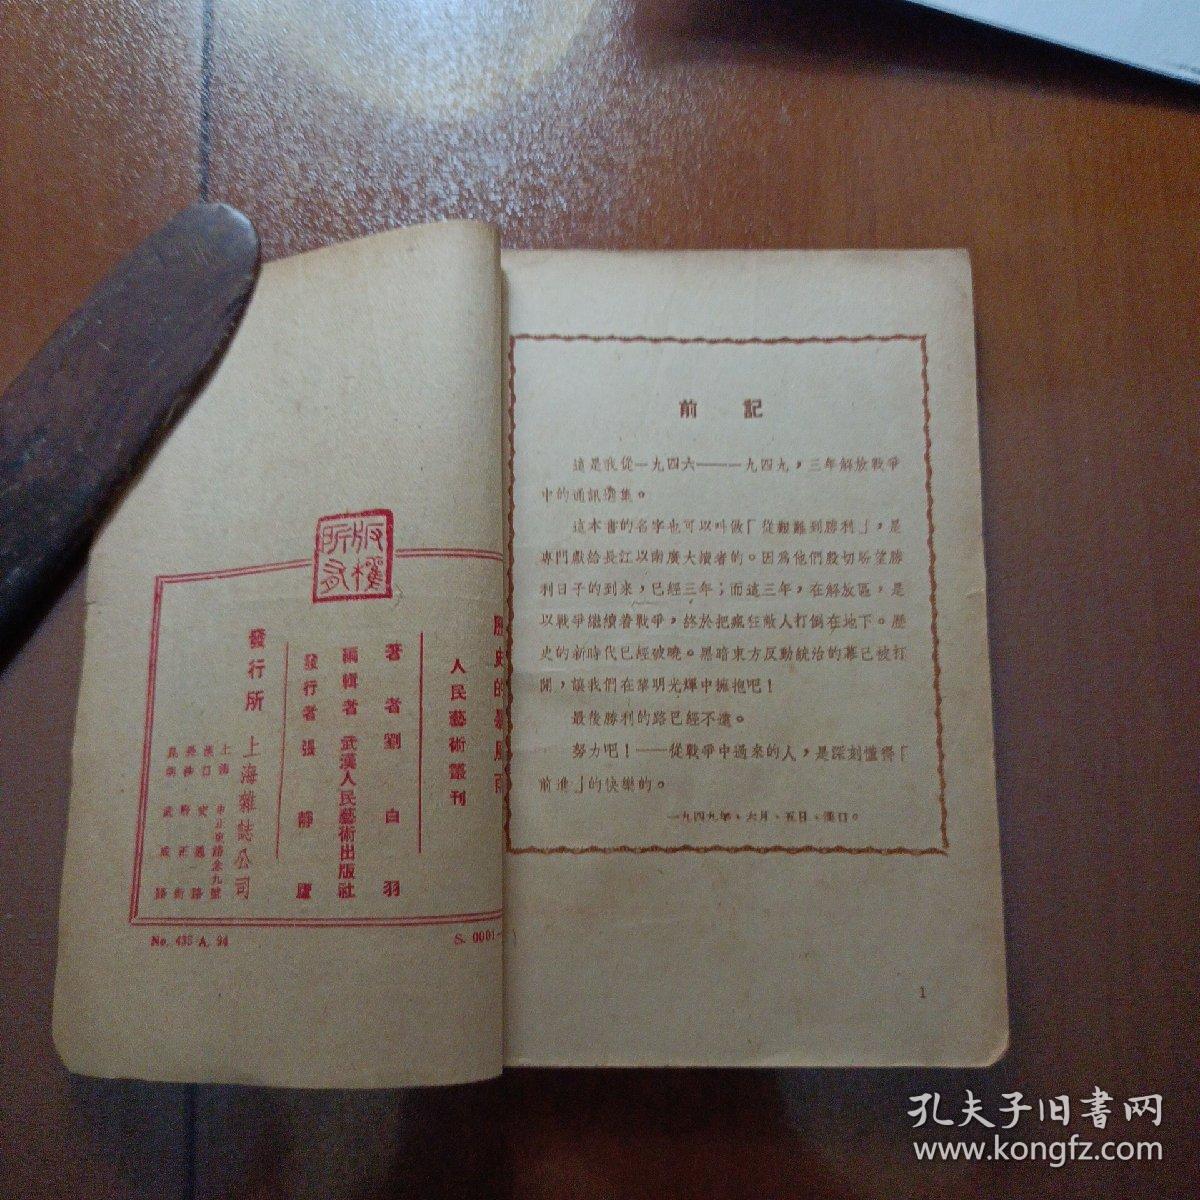 歷史的暴風雨
人民藝術叢刊
著者劉白羽
編輯者武漢人民藝術出版社
發行者張靜廬
發行所上海雜誌公司
版權所有
No. 435 A. 94
S. 0001-
前記
這是我從一九四六——一九四九，三年解放戰爭
中的通訊選集。
這本書的名字也可以叫做「從艱難到勝利」，是
專門獻給長江以南廣大讀者的。因爲他們殷切盼望勝
利日子的到來，已經三年；而這三年，在解放區，是
以戰爭繼續着戰爭，終於把瘋狂敵人打倒在地下。歷
史的新時代已經破曉。黑暗東方反動統治的幕已被打
開，讓我們在黎明光輝中擁抱吧！
最後勝利的路已經不遠。
努力吧！——從戰爭中過來的人，是深刻懂得「
前進」的快樂的。
一九四九年、六月、五日、漢口。
1
孔夫子旧書网
www.kongfz.com